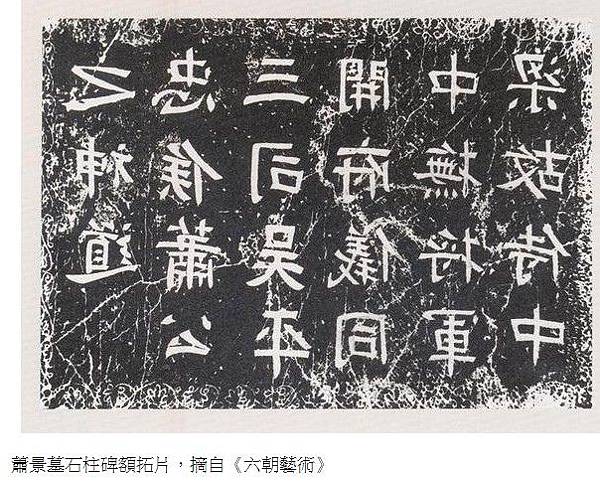 梁故侍中
中撫將軍
開府儀同
三司吳平
忠侯蕭公
之神道
蕭景墓石柱碑額拓片，摘自《六朝藝術》